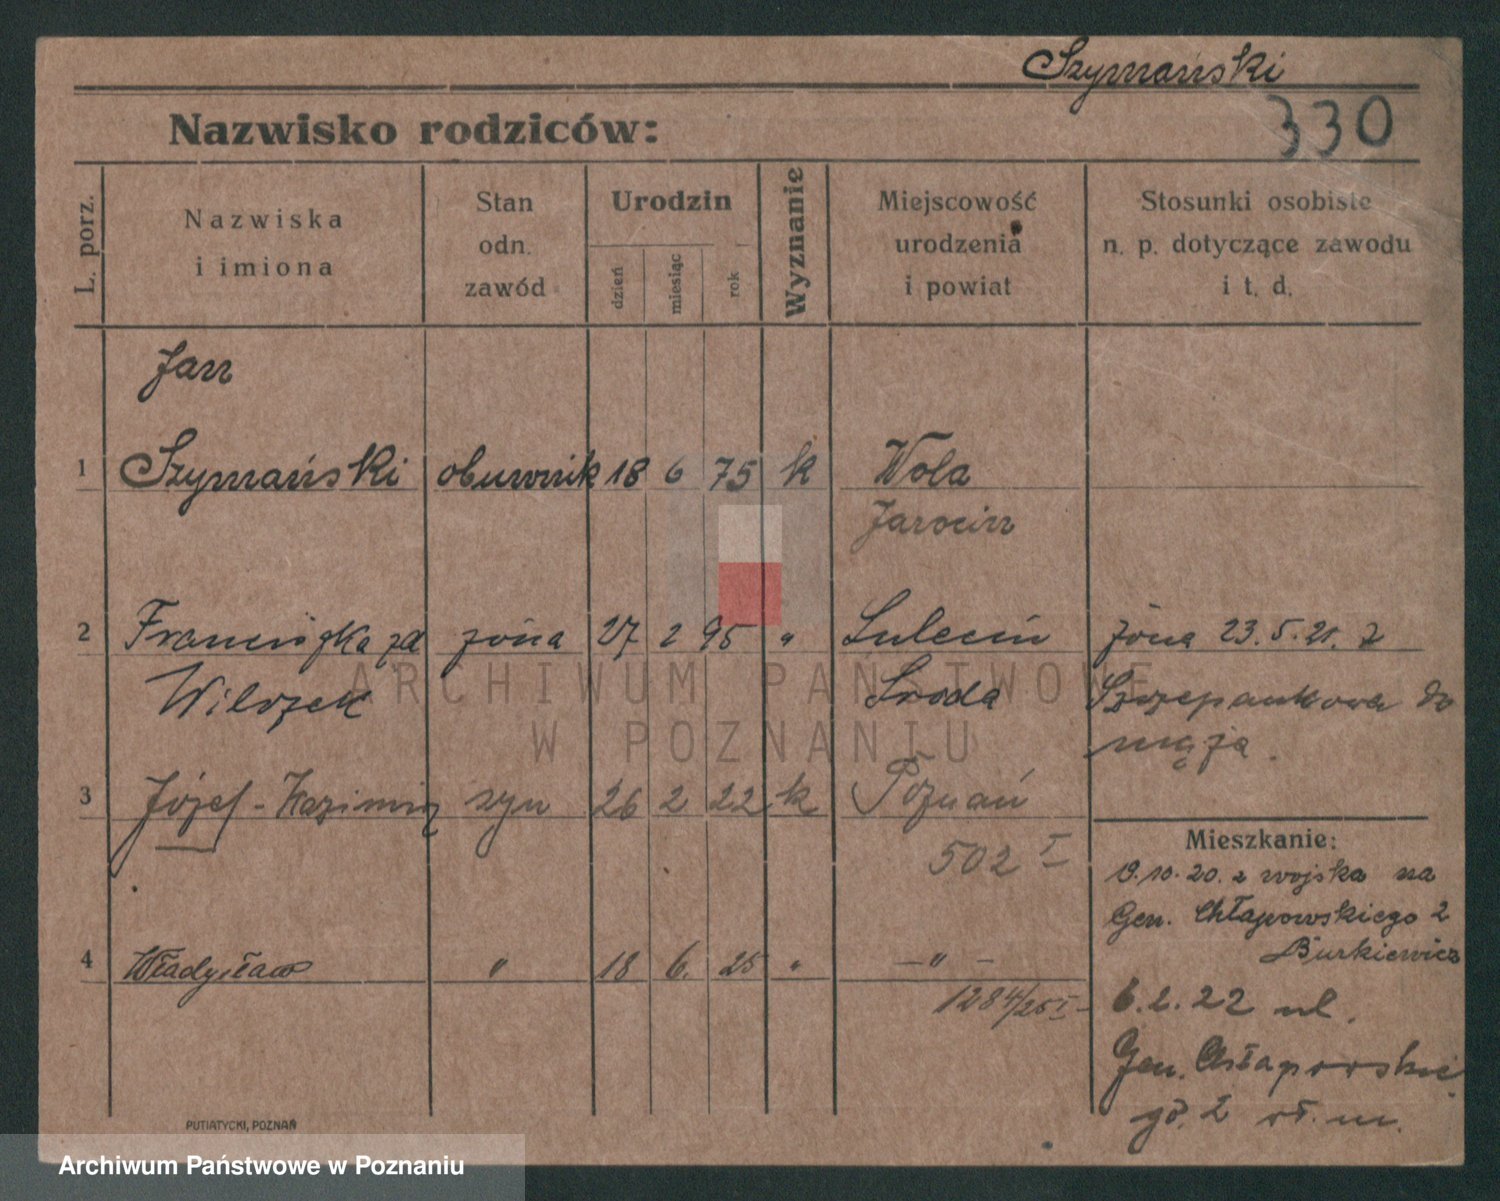 Szymański
330
Nazwisko rodziców:
L. porz.
Nazwiska
i imiona
Stan
odn.
zawód
Urodzin
dzień
miesiąc
rok
Wyznanie
Miejscowość
urodzenia
i powiat
Stosunki osobiste
n. p. dotyczące zawodu
i t. d.
Jan
1 Szymański obuwnik 18 6 75 k Wola
Jarocin
2 Franciszka zd żona 27 2 95 " Sulecin żona 23.5.21. z
Wilczek Sroda Szczepankowa do
męża.
3 Józef-Kazimierz syn 26 2 22 k Poznań
502 I
Mieszkanie:
19.10.20. z wojska na
Gen. Chłapowskiego 2
Burkiewicz
4 Władysław " 18 6. 25 " —"—
1284/25 I
6.2.22 ul.
Gen. Chłapowskie
go. 2 wł. m.
PUTIATYCKI, POZNAŃ
ARCHIWUM PAŃSTWOWE
W POZNANIU
Archiwum Państwowe w Poznaniu